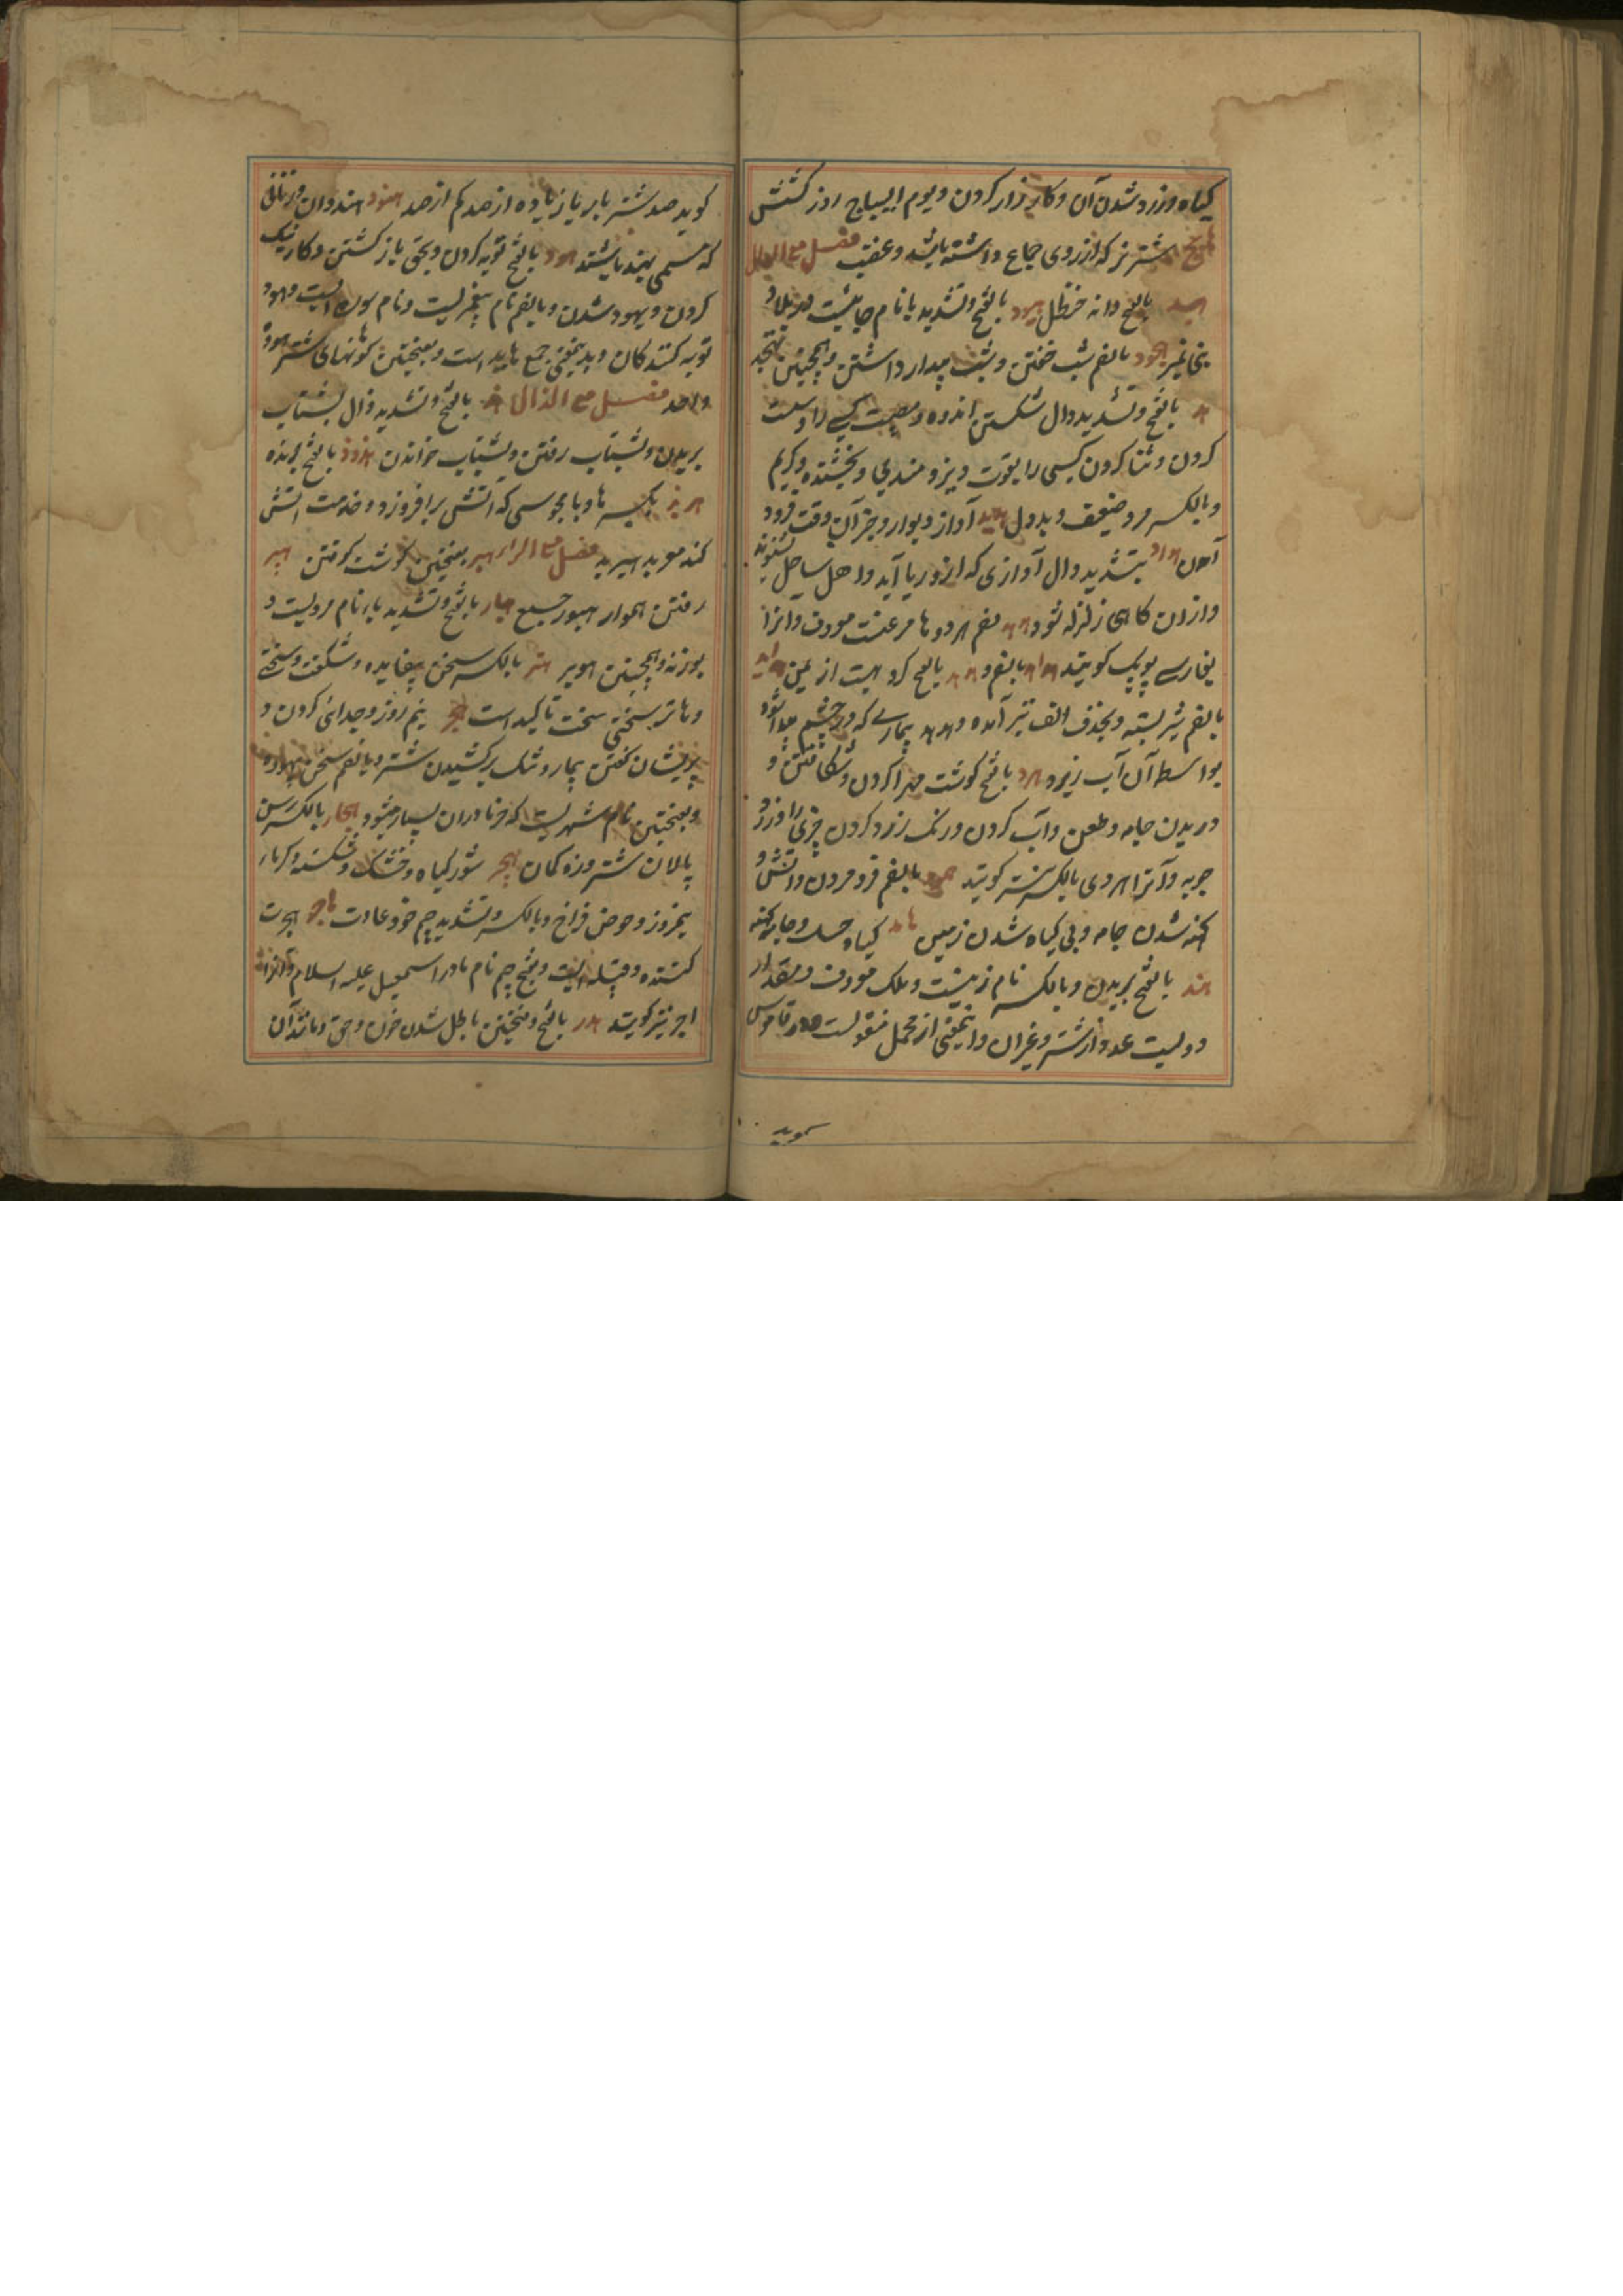 کیاه و زرد شدن آن و کارزار کردن و یوم الهیاج روز کشش
شتر نر که ارزوی جماع داشته باشد و عقب فصل مع الدال
هبید بالفتح دانه حنظل هبود بالفتح و تشدید با نام جائیست در بلاد
بنی نمیر هجود بالضم شب خفتن و شب بیدار داشتن و همچنین تهجد
هد بالفتح و تشدید دال شکستن اندوه و مصیبت کسی را و سست
کردن و ثنا کردن کسی را بقوت و نیرومندی و بخشنده و کریم
و بالکسر مرد ضعیف و بددل هدید آواز دیوار و جز آن وقت فرود
آمدن هاد بتشدید دال آوازی که از دریا آید و اهل ساحل شنوند
و ازان کاهی زلزله شود هدهد بضم هر دو ها مرغیست معروف و انرا
بفارسی پوپک کویند هداهد بالضم و هدهد بالفتح کروهیست از یمن هدابد
بالضم شیر بسته و بحذف الف نیز آمده و هدبد بیماری که در چشم پیدا شود
بواسطه آن آب ریزد هرد بالفتح کوشت مهرا کردن و شکافتن و
دریدن جامه و طعن و آب کردن و رنک زرد کردن چیزی را و زرد
چوبه و آنرا هردی بالکسر نیز کویند همود بالضم فرو مردن آتش و
کهنه شدن جامه و بی کیاه شدن زمین هامد کیاه خشک و جامه کهنه
هند بالفتح بریدن و بالکسر نام زنیست و ملک معروف و مقدار
دویست عدد از شتر و غیران و اینمعنی از مجمل منقولست و در قاموس
کوید
کوید صد شتر یا بر یا زیاده از صد کم از صد هنود هندوان و زنانی
که مسمی بهند باشند هود بالفتح توبه کردن و بحق باز کشتن و کار نیک
کردن و یهود شدن و بالضم نام پیغمبریست و نام سوره ایست و یهود
توبه کنندکان و بدینمعنی جمع هایداست و بفتحتین کوهانهای شتر هوده
واحد فصل مع الذال هذ بالفتح و تشدید ذال بشتاب
بریدن و بشتاب رفتن و بشتاب خواندن هذوذ بالفتح برنده
هربذ بکسر ها و با مجوسی که اتش برافروزد و خدمت اتش
کند موبد هیربد فصل مع الراء هبر بفتحتین کوشت کرفتن هبیر
رفتن هموار هبور جمع هبار بالفتح و تشدید باء نام مردیست و
بوزنه و همچنین هوبر هتر بالکسر سخن بیفایده و شکفت و سختی
و هاتر بسختی سخت تاکید است هجر نیم روز و جدائی کردن و
پریشان کفتن بیمار و شک برکشیدن شتر و بالضم سخن بیهوده
و بفتحتین نام شهریست که خرما دران بسیار میشود هجار بالکسر رسن
پالان شتر و زه کمان هجیر شور کیاه و خشک و شکسته و کرماء
نیمروز و حوض فراخ و بالکسر و تشدید جیم خو و عادت هاجر هجرت
کننده و قبیله ایست و بفتح جیم نام مادر اسمعیل علیه السلام و انرا
اجر نیز کویند هدر بالفتح و فتحتین باطل شدن خون و حق و مانند آن